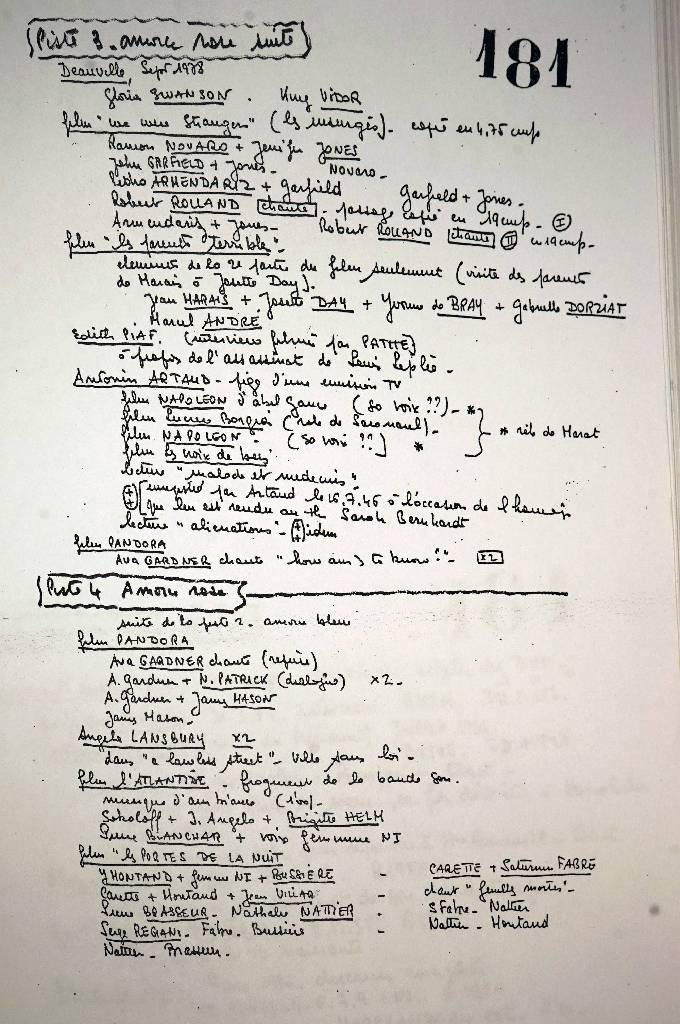 Piste 3 - amorce rose suite
181
Deauville, Sept 1978
Gloria SWANSON . King VIDOR
film "we were Strangers" (les insurgés) - copié en 4,75 cmps
Ramon NOVARO + Jenifer JONES
John GARFIELD + Jones - Novaro -
Pedro ARMENDARIZ + Garfield Garfield + Jones -
Robert ROLLAND chante - passage copié en 19 cmps - I
Armendariz + Jones - Robert ROLLAND chante II en 19 cmps -
film "les parents terribles" -
éléments de la 2e partie du film seulement (visite des parents
de Marais à Josette Day).
Jean MARAIS + Josette DAY + Yvonne de BRAY + Gabrielle DORZIAT
Marcel ANDRÉ
Edith PIAF. (interview filmée par PATHE)
à propos de l'assassinat de Louis Leplée -
Antonin ARTAUD - pige d'une emission TV
film NAPOLEON d'Abel Gance (sa voix ??) - *
film Lucrece Borgia (role de Savonarol) -
film NAPOLEON - (sa voix ??) *
* rôle de Marat
film les croix de bois
lecture "malade et medecins" -
enregistré par Artaud le 16.7.46 à l'occasion de l'homage
que lui est rendu au th Sarah Bernhardt
lecture "alienations" - idem
film PANDORA
Ava GARDNER chante "how am I to know?" - x2
Piste 4 Amorce rose
suite de la piste 2 - amorce bleue
film PANDORA
Ava GARDNER chante (reprise)
A. Gardner + N. PATRICK (dialogue) x2 -
A. Gardner + James MASON
James Mason -
Angela LANSBURY x2
dans "a lawless street" - ville sans loi -
film l'ATLANTIDE - fragment de la bande son.
musique d'ambiance (1'00) -
Sokoloff + J. Angelo + Brigitte HELM
Pierre BLANCHAR + voix féminine NI
film "les PORTES DE LA NUIT
Y MONTAND + femme NI + BUSSIÈRE - CARETTE + Saturnin FABRE
Carette + Montand + Jean VILLAR - chant "feuilles mortes" -
Pierre BRASSEUR - Nathalie NATTIER . S Fabre - Nattier
Serge REGIANI - Fabre - Bussière - Nattier - Montand
Nattier - Brasseur -